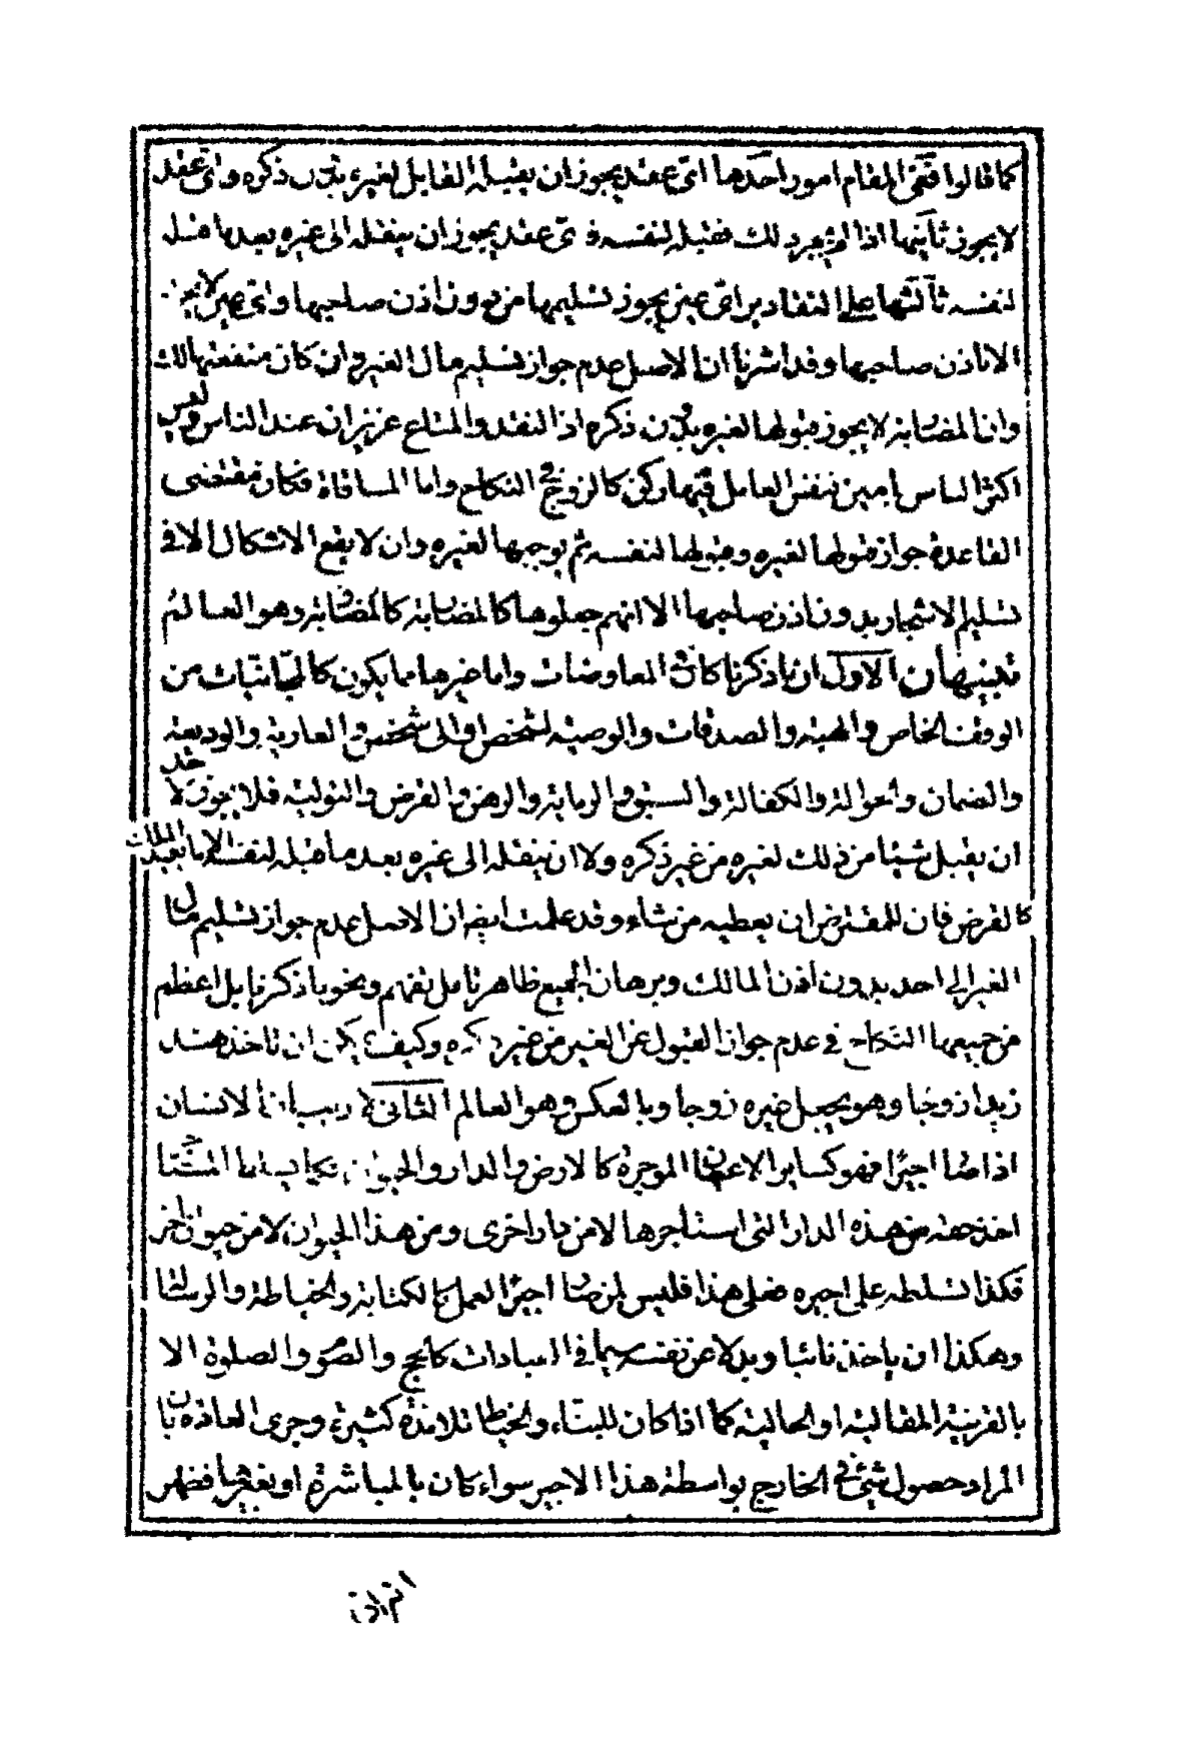 كما قالوا ففى المقام امور احدها اىّ عقد يجوز ان يقبله القابل لغيره بدون ذكره واىّ عقد
لا يجوز ثانيها اذا لم يجز ذلك فقبله لنفسه فاىّ عقد يجوز ان ينقله الى غيره بعد ما قبله
لنفسه ثالثها على التقادير اىّ عين يجوز تسليمها من دون اذن صاحبها واىّ عين لا يجوز
الا باذن صاحبها وقد اشرنا ان الاصل عدم جواز تسليم مال الغير وان كان منفعتها لك
وان المضاربة لا يجوز قبولها لغيره بدون ذكره اذ النقد والمتاع عزيزان عند الناس وليس
اكثر الناس بامين فنفس العامل فيها ركن كالزوج فى النكاح واما المساقاة فكان مقتضى
القاعدة جواز قبولها لغيره وقبولها لنفسه ثم يوجبها لغيره وان لا يقع الاشكال الا فى
تسليم الاشجار بدون اذن صاحبها الا انهم جعلوها كالمضاربة وهو العالم
تنبيهان الاول ان ما ذكرنا كان فى المعاوضات واما غيرها مما يكون كالمجانيات من
الوقف الخاص والهبة والصدقات والوصية لشخص او الى شخص والعارية والوديعة
والضمان والحوالة والكفالة والسبق والرماية والرهن والقرض والتولية فلا يجوز لاحد
ان يقبل شيئا من ذلك لغيره من غير ذكره ولا ان ينقله الى غيره بعد ما قبله لنفسه الا ما يفيد الملك
كالقرض فان للمقترض ان يعطيه من شاء وقد علمت ايضا ان الاصل عدم جواز تسليم مال
الغير الى احد بدون اذن المالك وبرهان الجميع ظاهر تامل تفهم ونحو ما ذكرنا بل اعظم
من جميعها النكاح فى عدم جواز القبول عن الغير من غير ذكره وكيف يمكن ان تاخذ هند
زيدا زوجا وهو يجعل غيره زوجا وبالعكس وهو العالم الثانى لا ريب ان الانسان
اذا صار اجيرا فهو كساير الاعيان الموجرة كالارض والدار والحيوان فكما ليس للمستاجر
اخذ حقه من هذه الدار التى استاجرها الا من دار اخرى ومن هذا الحيوان لا من حيوان اخر
فكذا تسلطه على اجيره فعلى هذا فليس لمن صار اجيرا لعمل كالكتابة والخياطة والرسالة
وهكذا ان ياخذ نائبا وبدلا عن نفسه سيما فى العبادات كالحج والصوم والصلوة الا
بالقرينة المقالية او الحالية كما اذا كان للبناء والخياط تلامذة كثيرة وجرى العادة بان
المراد حصول شىء فى الخارج بواسطة هذا الاجير سواء كان بالمباشرة او بغيرها فظهر